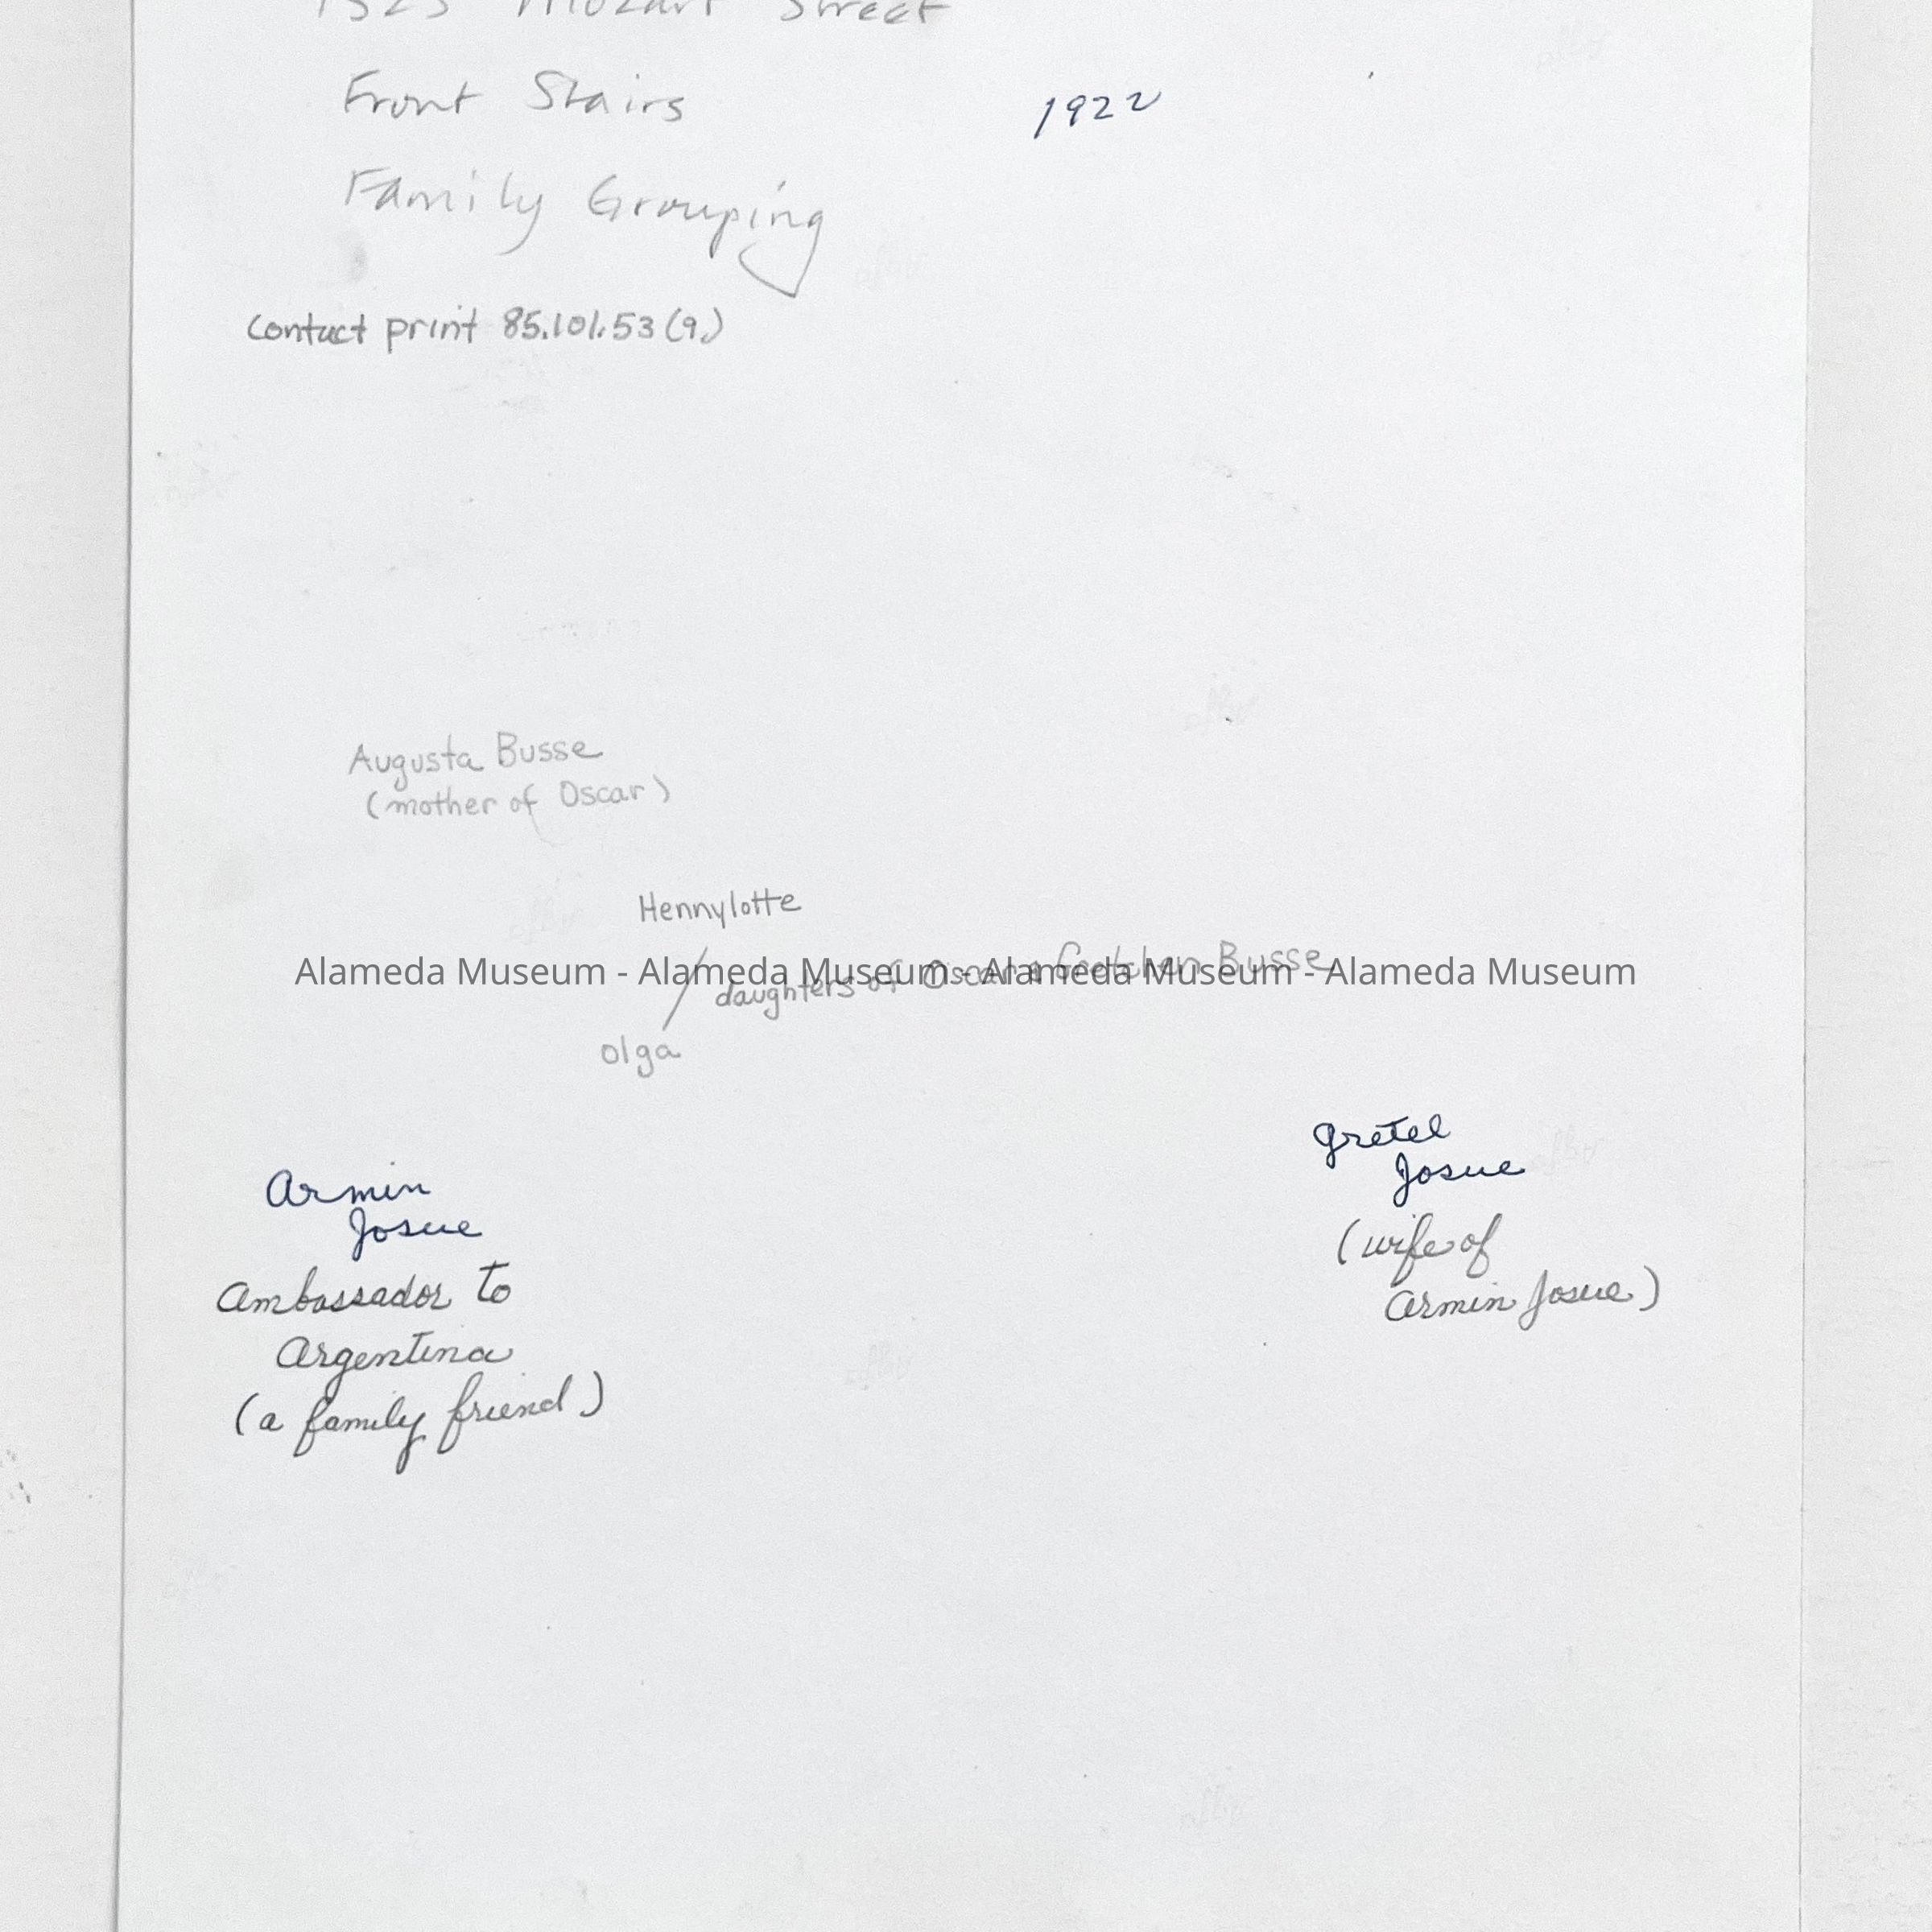 1323 Mozart Street
Front Stairs
1922
Family Grouping
Contact print 85.101.53 (9.)
Augusta Busse
(mother of Oscar)
Hennylotte
daughters of Oscar & Gretchen Busse
Alameda Museum - Alameda Museum - Alameda Museum - Alameda Museum
Olga
Gretel
Josue
(wife of
Armin Josue)
Armin
Josue
Ambassador to
Argentina
(a family friend)